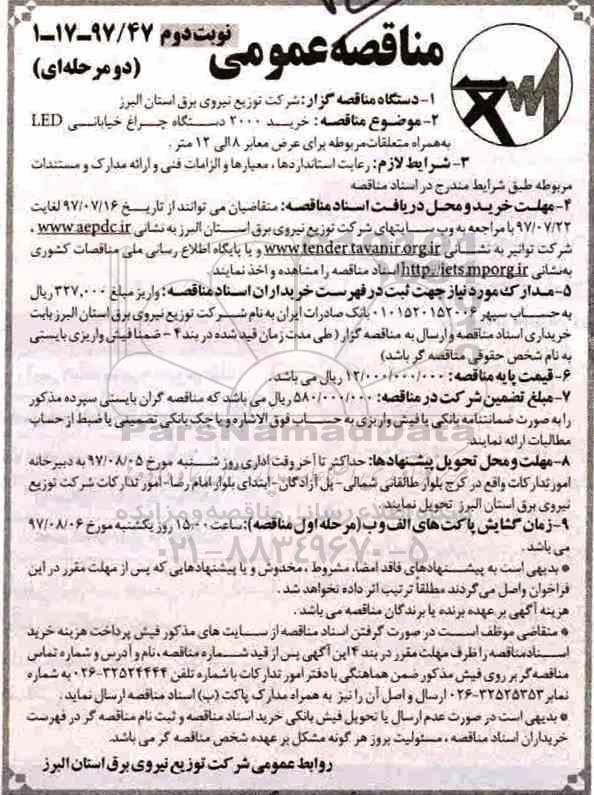 نوبت دوم ۹۷/۴۷-۱۷-۱
مناقصه عمومی
(دو مرحله ای)
۱- دستگاه مناقصه گزار: شرکت توزیع نیروی برق استان البرز
۲- موضوع مناقصه: خرید ۲۰۰۰ دستگاه چراغ خیابانی LED
به همراه متعلقات مربوطه برای عرض معابر ۸ الی ۱۲ متر.
۳- شرایط لازم: رعایت استانداردها، معیارها و الزامات فنی و ارائه مدارک و مستندات
مربوطه طبق شرایط مندرج در اسناد مناقصه
۴- مهلت خرید و محل دریافت اسناد مناقصه: متقاضیان می توانند از تاریخ ۹۷/۰۷/۱۶ لغایت
۹۷/۰۷/۲۲ با مراجعه به وب سایتهای شرکت توزیع نیروی برق استان البرز به نشانی www.aepdc.ir ،
شرکت توانیر به نشانی www.tender.tavanir.org.ir و یا پایگاه اطلاع رسانی ملی مناقصات کشوری
به نشانی http://iets.mporg.ir اسناد مناقصه را مشاهده و اخذ نمایند.
۵- مدارک مورد نیاز جهت ثبت در فهرست خریداران اسناد مناقصه: واریز مبلغ ۳۲۷,۰۰۰ ریال
به حساب سپهر ۰۱۰۱۵۲۰۱۵۲۰۰۶ بانک صادرات ایران به نام شرکت توزیع نیروی برق استان البرز بابت
خریداری اسناد مناقصه و ارسال به مناقصه گزار (طی مدت زمان قید شده در بند ۴ - ضمنا فیش واریزی بایستی
به نام شخص حقوقی مناقصه گر باشد)
۶- قیمت پایه مناقصه: ۱۲/۰۰۰/۰۰۰/۰۰۰ ریال می باشد.
۷- مبلغ تضمین شرکت در مناقصه: ۵۸۰/۰۰۰/۰۰۰ ریال می باشد که مناقصه گران بایستی سپرده مذکور
را به صورت ضمانتنامه بانکی یا فیش واریزی به حساب فوق الاشاره و یا چک بانکی تضمینی یا ضبط از حساب
مطالبات ارائه نمایند.
ParsNamadData
۸- مهلت و محل تحویل پیشنهادها: حداکثر تا آخر وقت اداری روز شنبه مورخ ۹۷/۰۸/۰۵ به دبیرخانه
امور تدارکات واقع در کرج بلوار طالقانی شمالی - پل آزادگان - ابتدای بلوار امام رضا - امور تدارکات شرکت توزیع
نیروی برق استان البرز تحویل نمایند.
۹- زمان گشایش پاکت های الف و ب (مرحله اول مناقصه): ساعت ۱۵:۰۰ روز یکشنبه مورخ ۹۷/۰۸/۰۶
می باشد.
۰۲۱-۸۸۳۴۹۶۷۰-۵
* بدیهی است به پیشنهادهای فاقد امضا، مشروط، مخدوش و یا پیشنهادهایی که پس از مهلت مقرر در این
فراخوان واصل می گردند مطلقاً ترتیب اثر داده نخواهد شد.
هزینه آگهی بر عهده برنده یا برندگان مناقصه می باشد.
* متقاضی موظف است در صورت گرفتن اسناد مناقصه از سایت های مذکور فیش پرداخت هزینه خرید
اسناد مناقصه را ظرف مهلت مقرر در بند ۴ این آگهی پس از قید شماره مناقصه، نام و آدرس و شماره تماس
مناقصه گر بر روی فیش مذکور ضمن هماهنگی با دفتر امور تدارکات با شماره تلفن ۳۲۵۲۴۴۴۴-۰۲۶ به شماره
نمابر ۳۲۵۲۵۳۵۳-۰۲۶ ارسال و اصل آن را نیز به همراه مدارک پاکت (ب) اسناد مناقصه ارسال نماید.
* بدیهی است در صورت عدم ارسال یا تحویل فیش بانکی خرید اسناد مناقصه و ثبت نام مناقصه گر در فهرست
خریداران اسناد مناقصه، مسئولیت بروز هر گونه مشکل بر عهده شخص مناقصه گر می باشد.
روابط عمومی شرکت توزیع نیروی برق استان البرز